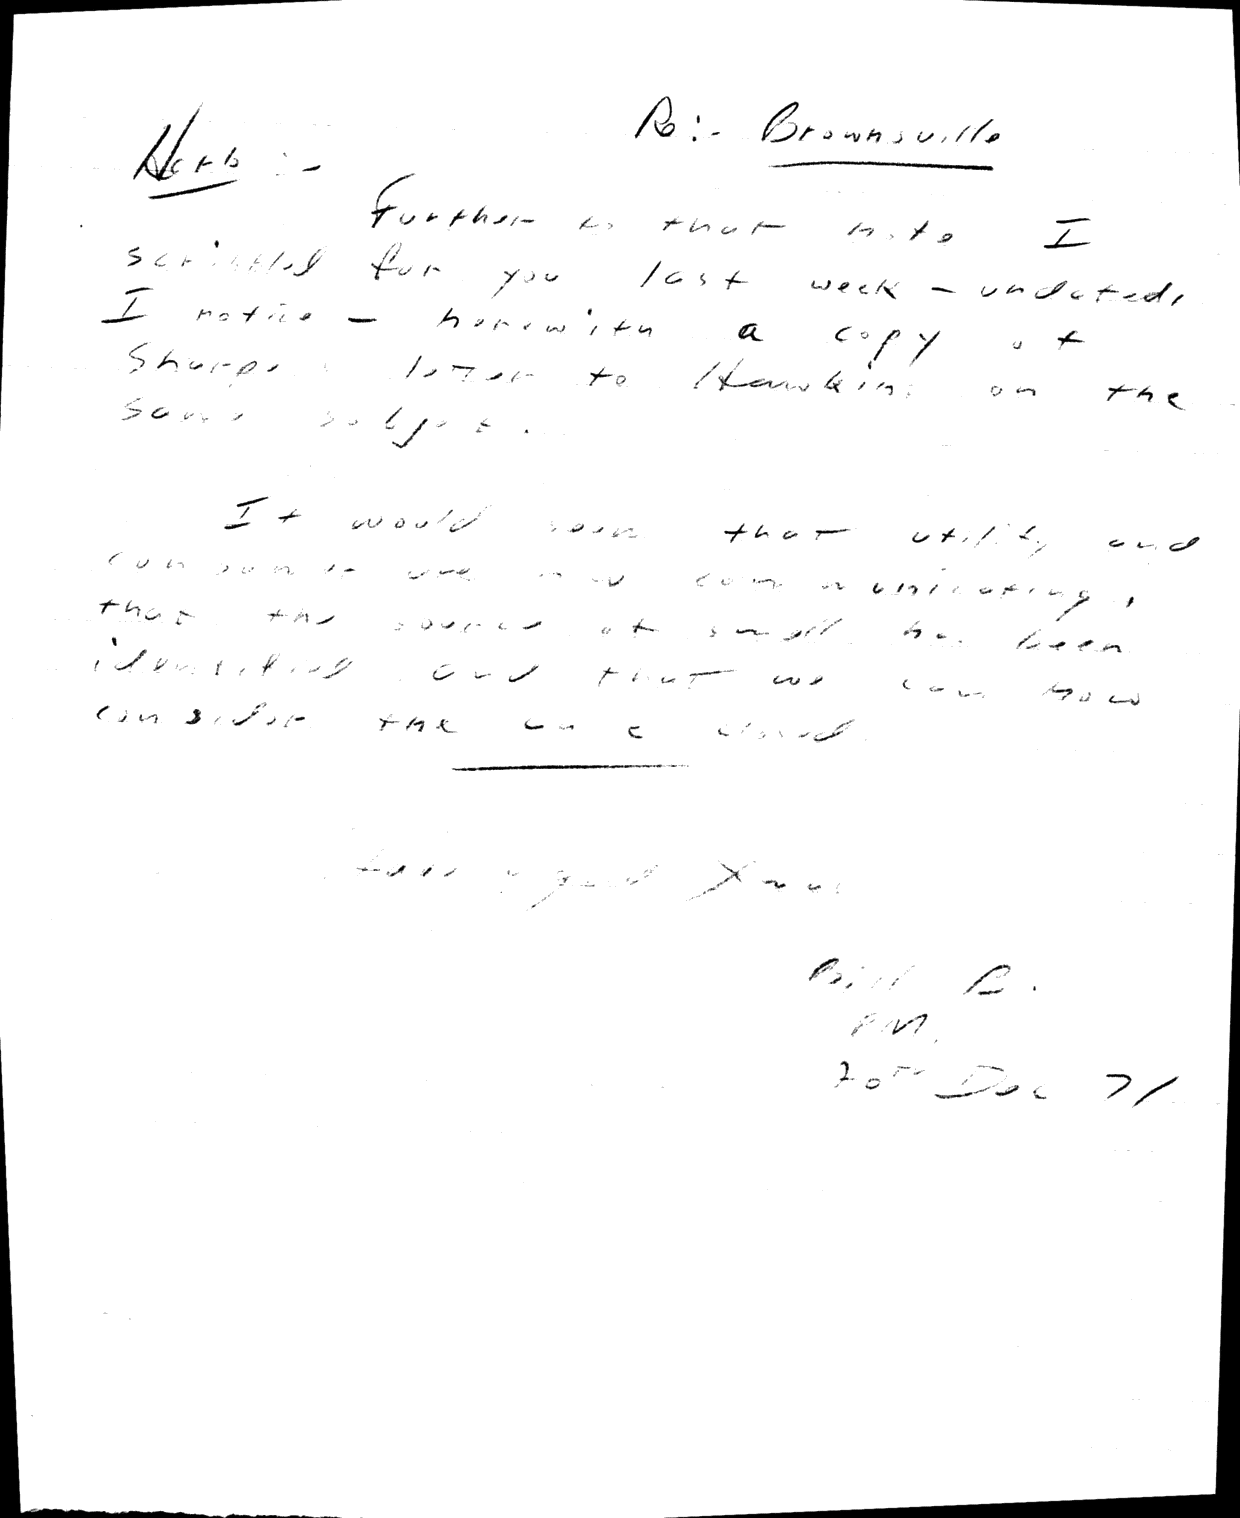 Re:- Brownsville
Herb :-
Further to that note I
scribbled for you last week - undated,
I notice - herewith a copy of
Sharpe letter to Hawkins on the
same subject.
It would seem that utility and
consumer are now communicating,
that the source of smell has been
identified and that we can now
consider the case closed.
Have a good Xmas
Bill B.
PM.
20TH Dec 71